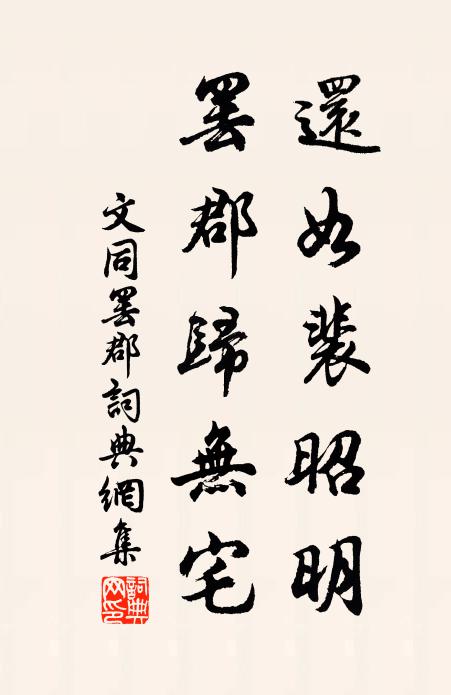 還如裴昭明
罷郡歸無宅
文同罷郡詞典網集
詞典网印